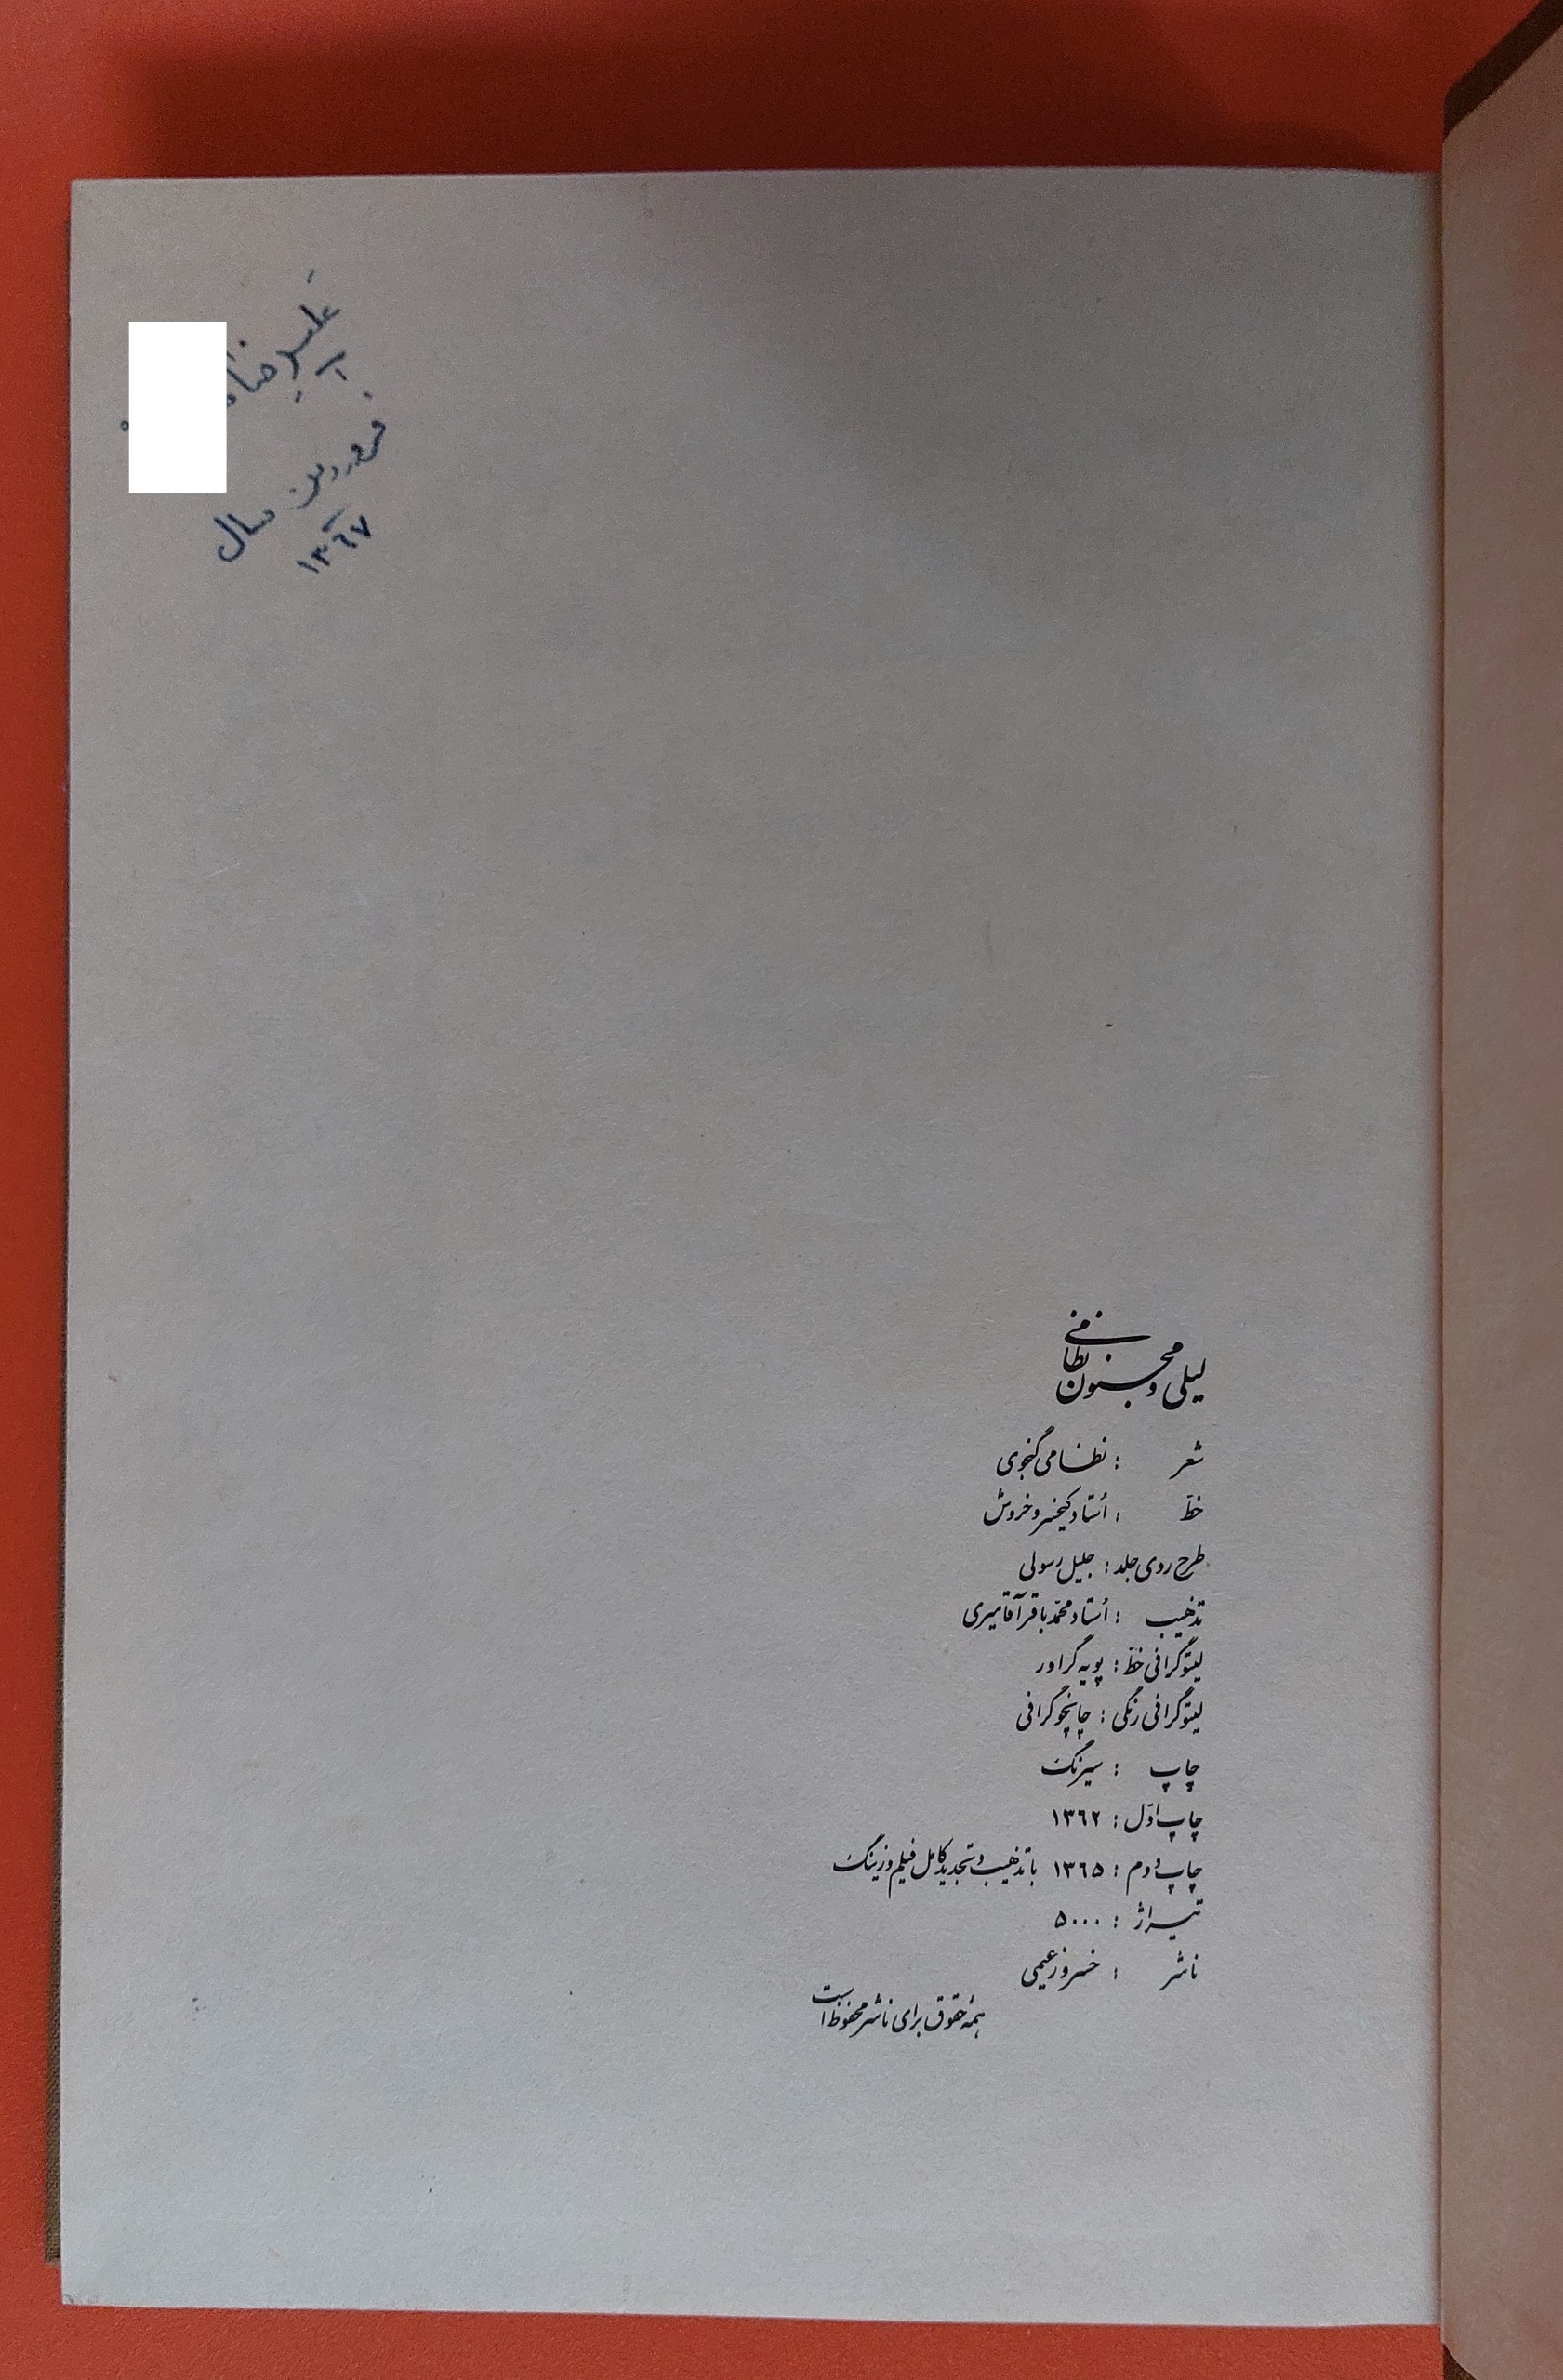 علیرضا
فروردین سال
۱۳۶۷
لیلی و مجنون نظامی
شعر : نظامی گنجوی
خطّ : اُستاد کیخسرو خروش
طرح روی جلد : جلیل رسولی
تذهیب : اُستاد محمّد باقر آقامیری
لیتوگرافی خطّ : پویه گراور
لیتوگرافی رنگی : چاپخوگرافی
چاپ : سیرنگ
چاپ اوّل : ۱۳۶۲
چاپ دوم : ۱۳۶۵ با تذهیب و تجدید کامل فیلم و زینگ
تیراژ : ۵۰۰۰
ناشر : خسرو زعیمی
همهٔ حقوق برای ناشر محفوظ است